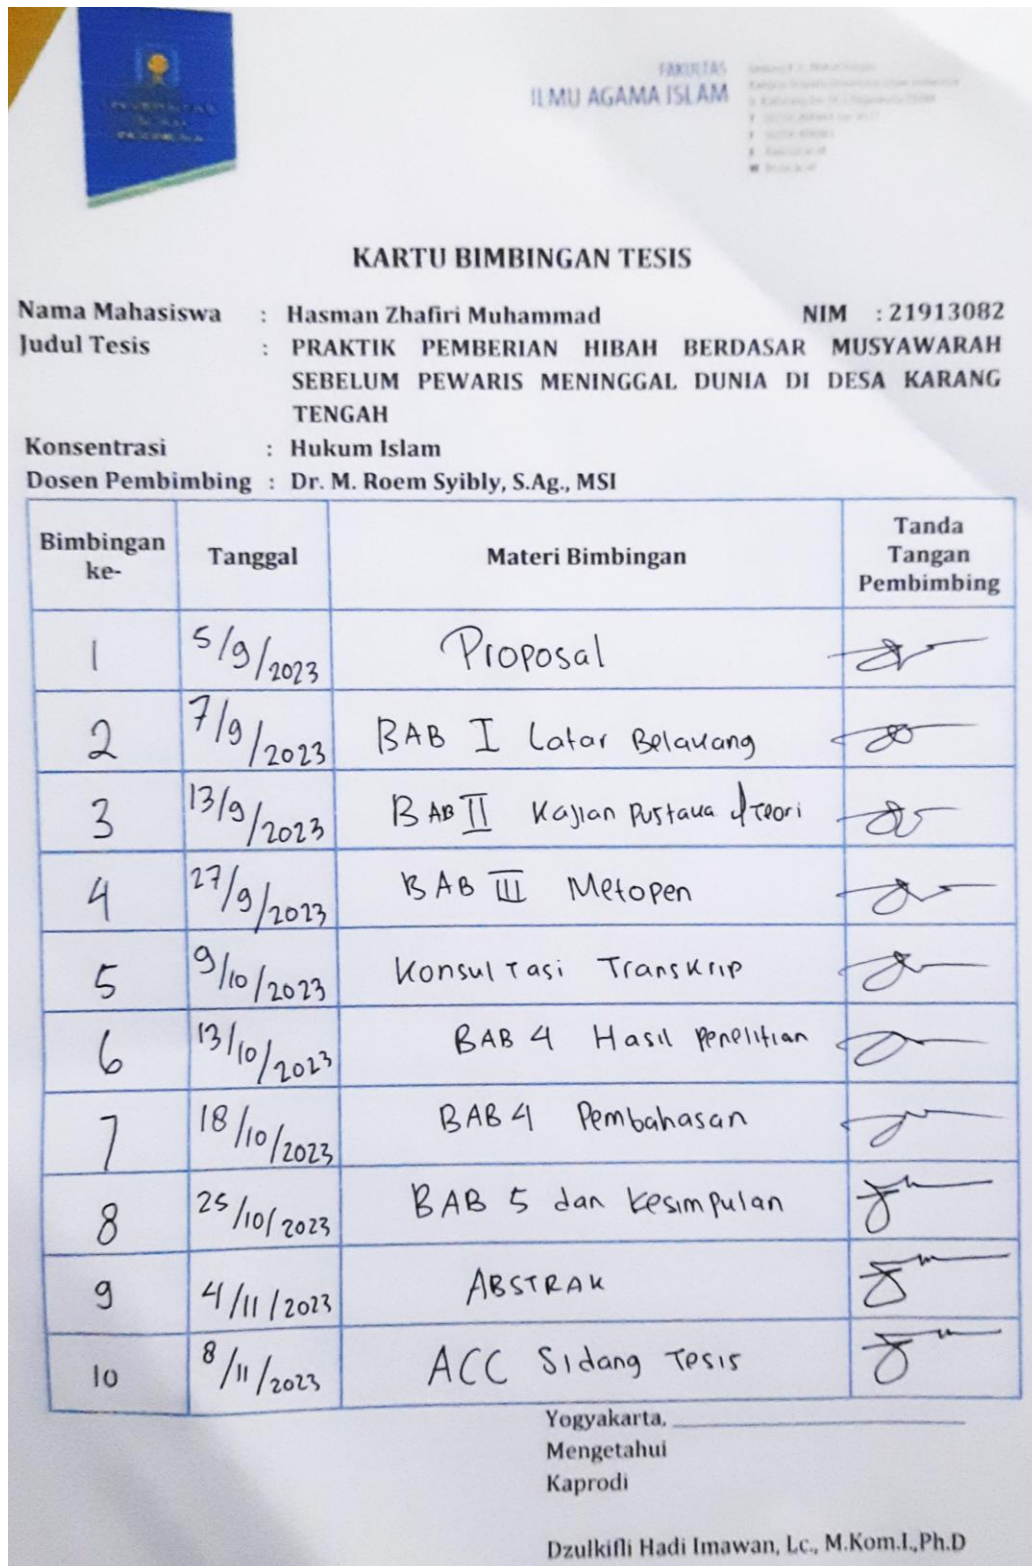 UNIVERSITAS
ISLAM
INDONESIA
FAKULTAS
ILMU AGAMA ISLAM
KARTU BIMBINGAN TESIS
Nama Mahasiswa : Hasman Zhafiri Muhammad NIM : 21913082
Judul Tesis : PRAKTIK PEMBERIAN HIBAH BERDASAR MUSYAWARAH
SEBELUM PEWARIS MENINGGAL DUNIA DI DESA KARANG
TENGAH
Konsentrasi : Hukum Islam
Dosen Pembimbing : Dr. M. Roem Syibly, S.Ag., MSI
Bimbingan ke- Tanggal Materi Bimbingan Tanda Tangan Pembimbing
1 5/9/2023 Proposal
2 7/9/2023 BAB I Latar Belakang
3 13/9/2023 BAB II Kajian Pustaka & Teori
4 27/9/2023 BAB III Metopen
5 9/10/2023 Konsultasi Transkrip
6 13/10/2023 BAB 4 Hasil Penelitian
7 18/10/2023 BAB 4 Pembahasan
8 25/10/2023 BAB 5 dan Kesimpulan
9 4/11/2023 ABSTRAK
10 8/11/2023 ACC Sidang Tesis
Yogyakarta,
Mengetahui
Kaprodi
Dzulkifli Hadi Imawan, Lc., M.Kom.I.,Ph.D